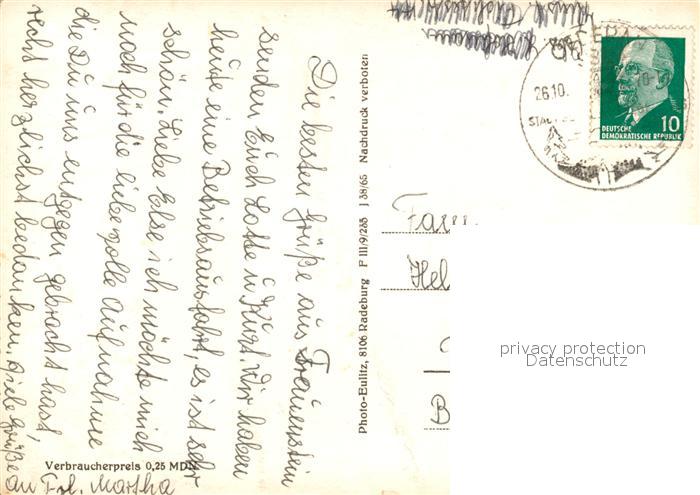 Die besten Grüße aus Frauenstein
senden Euch Lotte u. Kurt. Wir haben
heute eine Betriebsausfahrt, es ist sehr
schön. Liebe Else ich möchte mich
noch für die liebevolle Aufnahme
die Du uns entgegen gebracht hast,
recht herzlichst bedanken. Viele Grüße
an Frl. Martha
Verbraucherpreis 0,25 MDN
Photo-Eulitz, 8106 Radeburg F III/9/235 J 38/65 Nachdruck verboten
26.10.
10
DEUTSCHE
DEMOKRATISCHE REPUBLIK
Fam
Hel
B
privacy protection
Datenschutz